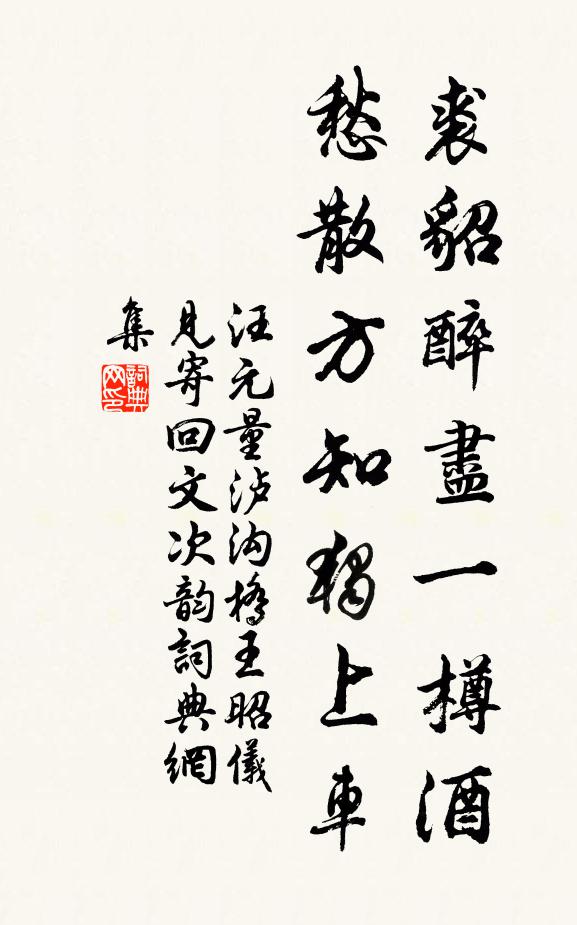 裘貂醉盡一樽酒
愁散方知獨上車
汪元量泸沟橋王昭儀
見寄回文次韵詞典網
集
詞典
网印